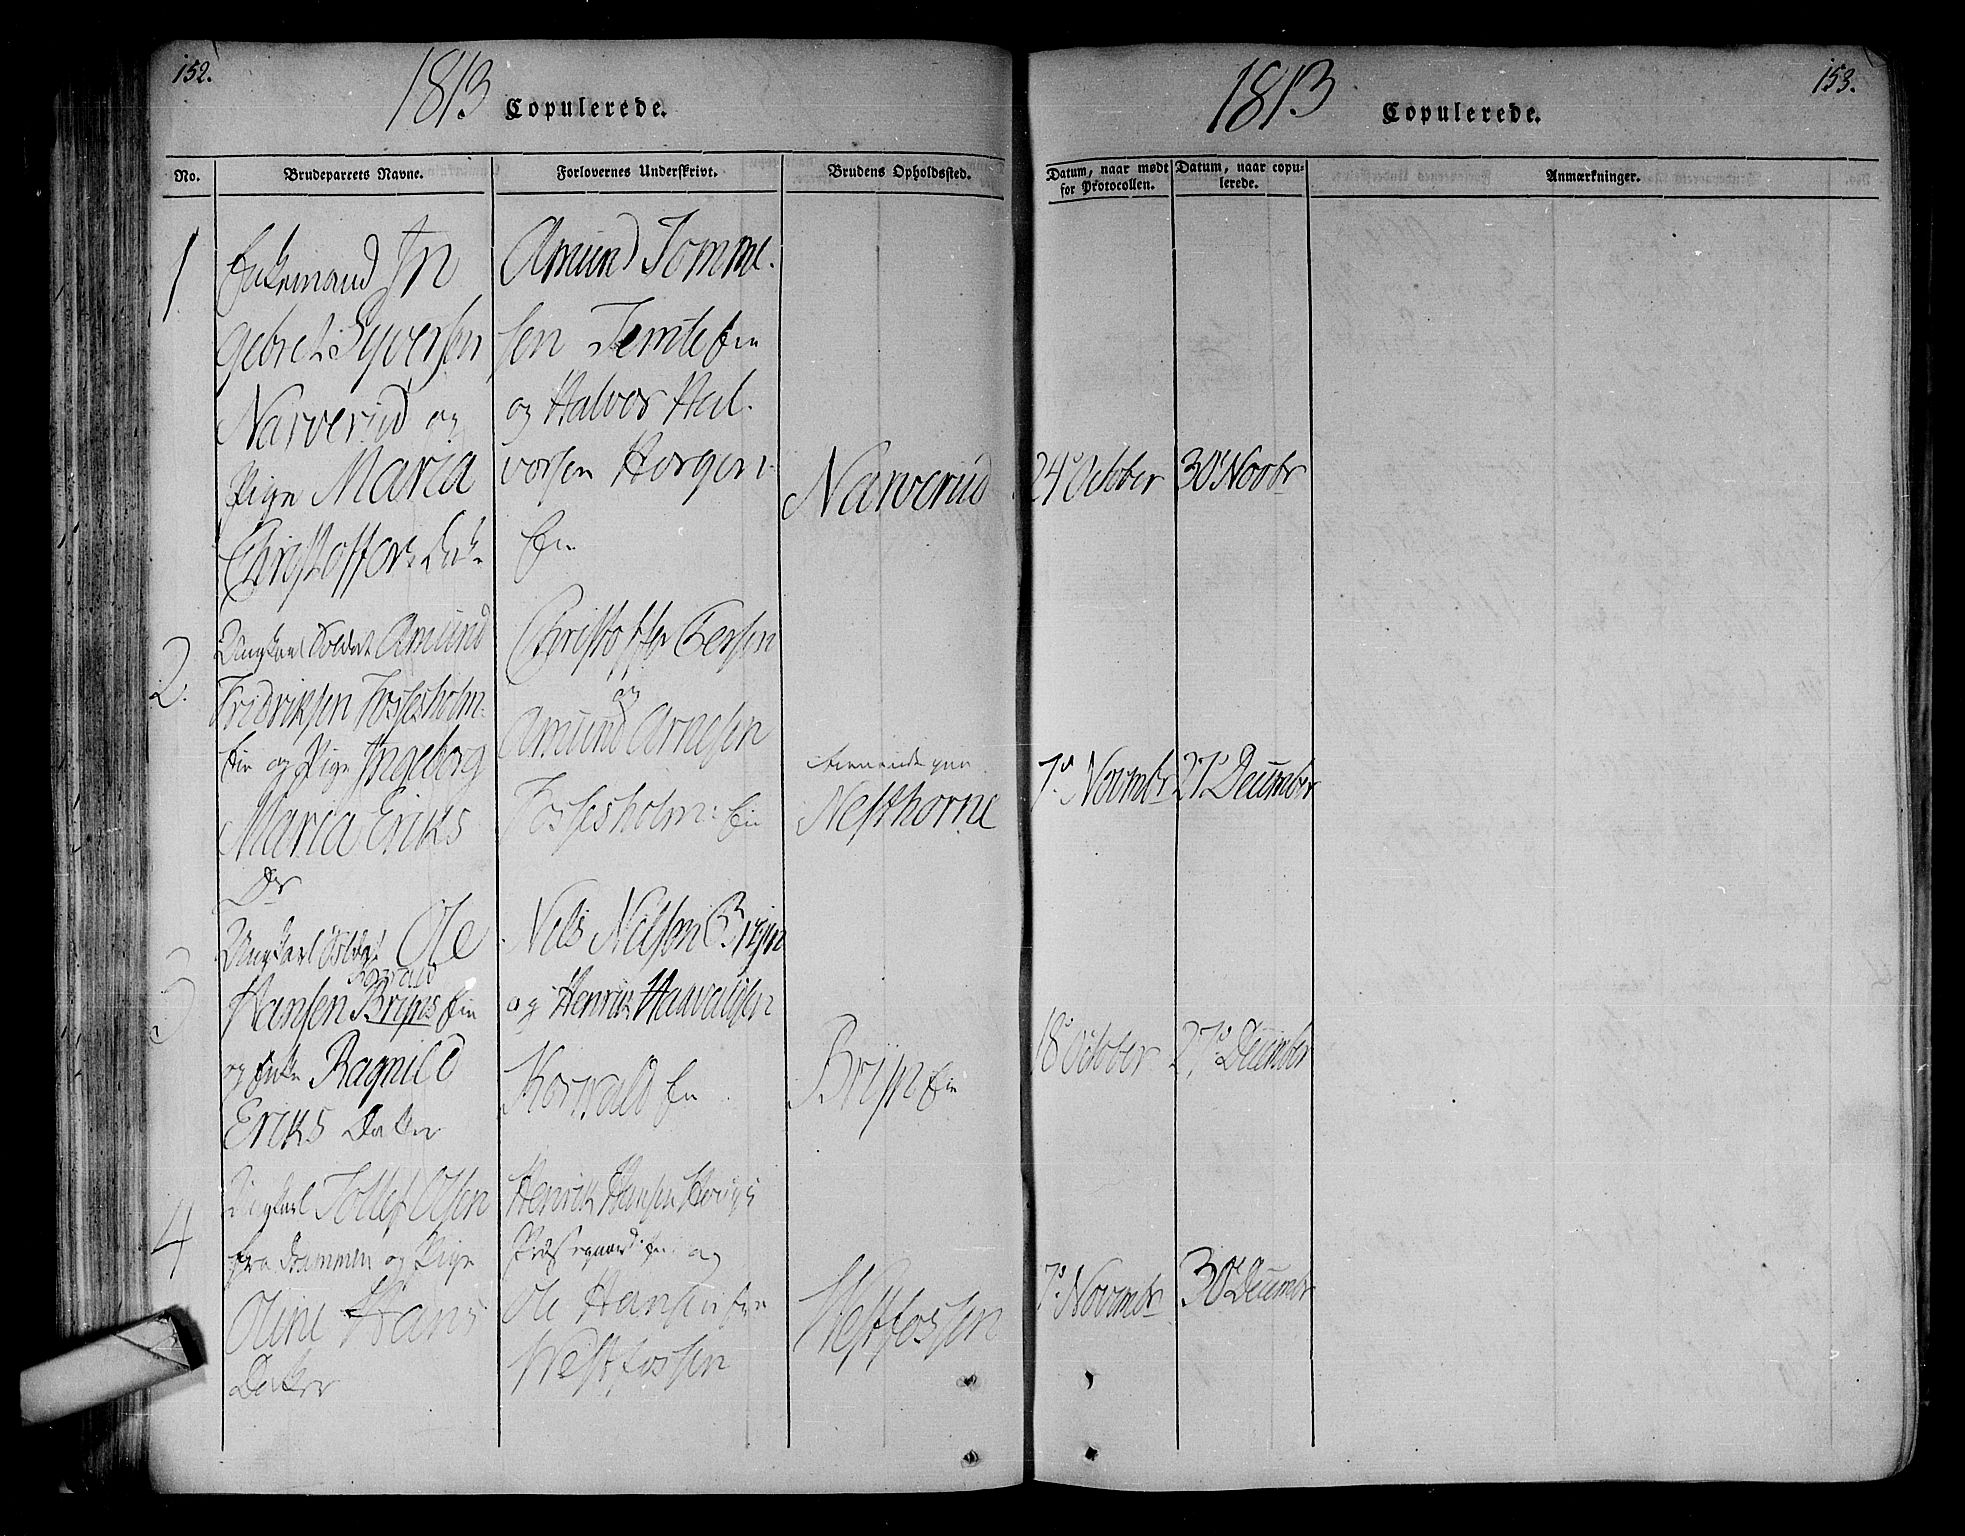 152.
1813
Copulerede.
No.
Brudeparrets Navne.
Forlovernes Underskrivt.
Brudens Opholdssted.
1
Enkemand In
gebret Syversen
Narverud og
Pige Maria
Christoffers Dat.
Amund Tomme.
sen Temte Eier
og Halvor Hal.
vorsen Horgen
Eier
Narverud
2.
Ungkarl Soldat Amund
Fridriksen Fossesholm.
Eie og Pige Ingeborg
Maria Eriks
Dr
Christoffer Persen
og
Amund Arnesen
Fossesholm: Eie
tienende paa
Nesthorne
3
Ungkarl Soldat Ole
Korvald
Hansen Brips Eie
og Enke Ragnild
Eriks Datter
Nels Nelsen
og Henrik Haavaldsen
Korvald Eie
Eie
4
Ungkarl Tollef Olsen
fra Drammen og Pige
Oline Hans
Datter
Henrik Hansen
Præstegaard Eie og
Ole Hansen
Westfossen
Westfossen
1813
Copulerede.
153.
Datum, naar mødt
for Protocollen.
Datum, naar copu-
lerede.
Anmærkninger.
24 October
30 Novbr
7 Novmbr
27 December
18 October
27 December
7 Novmbr
30 Decembr